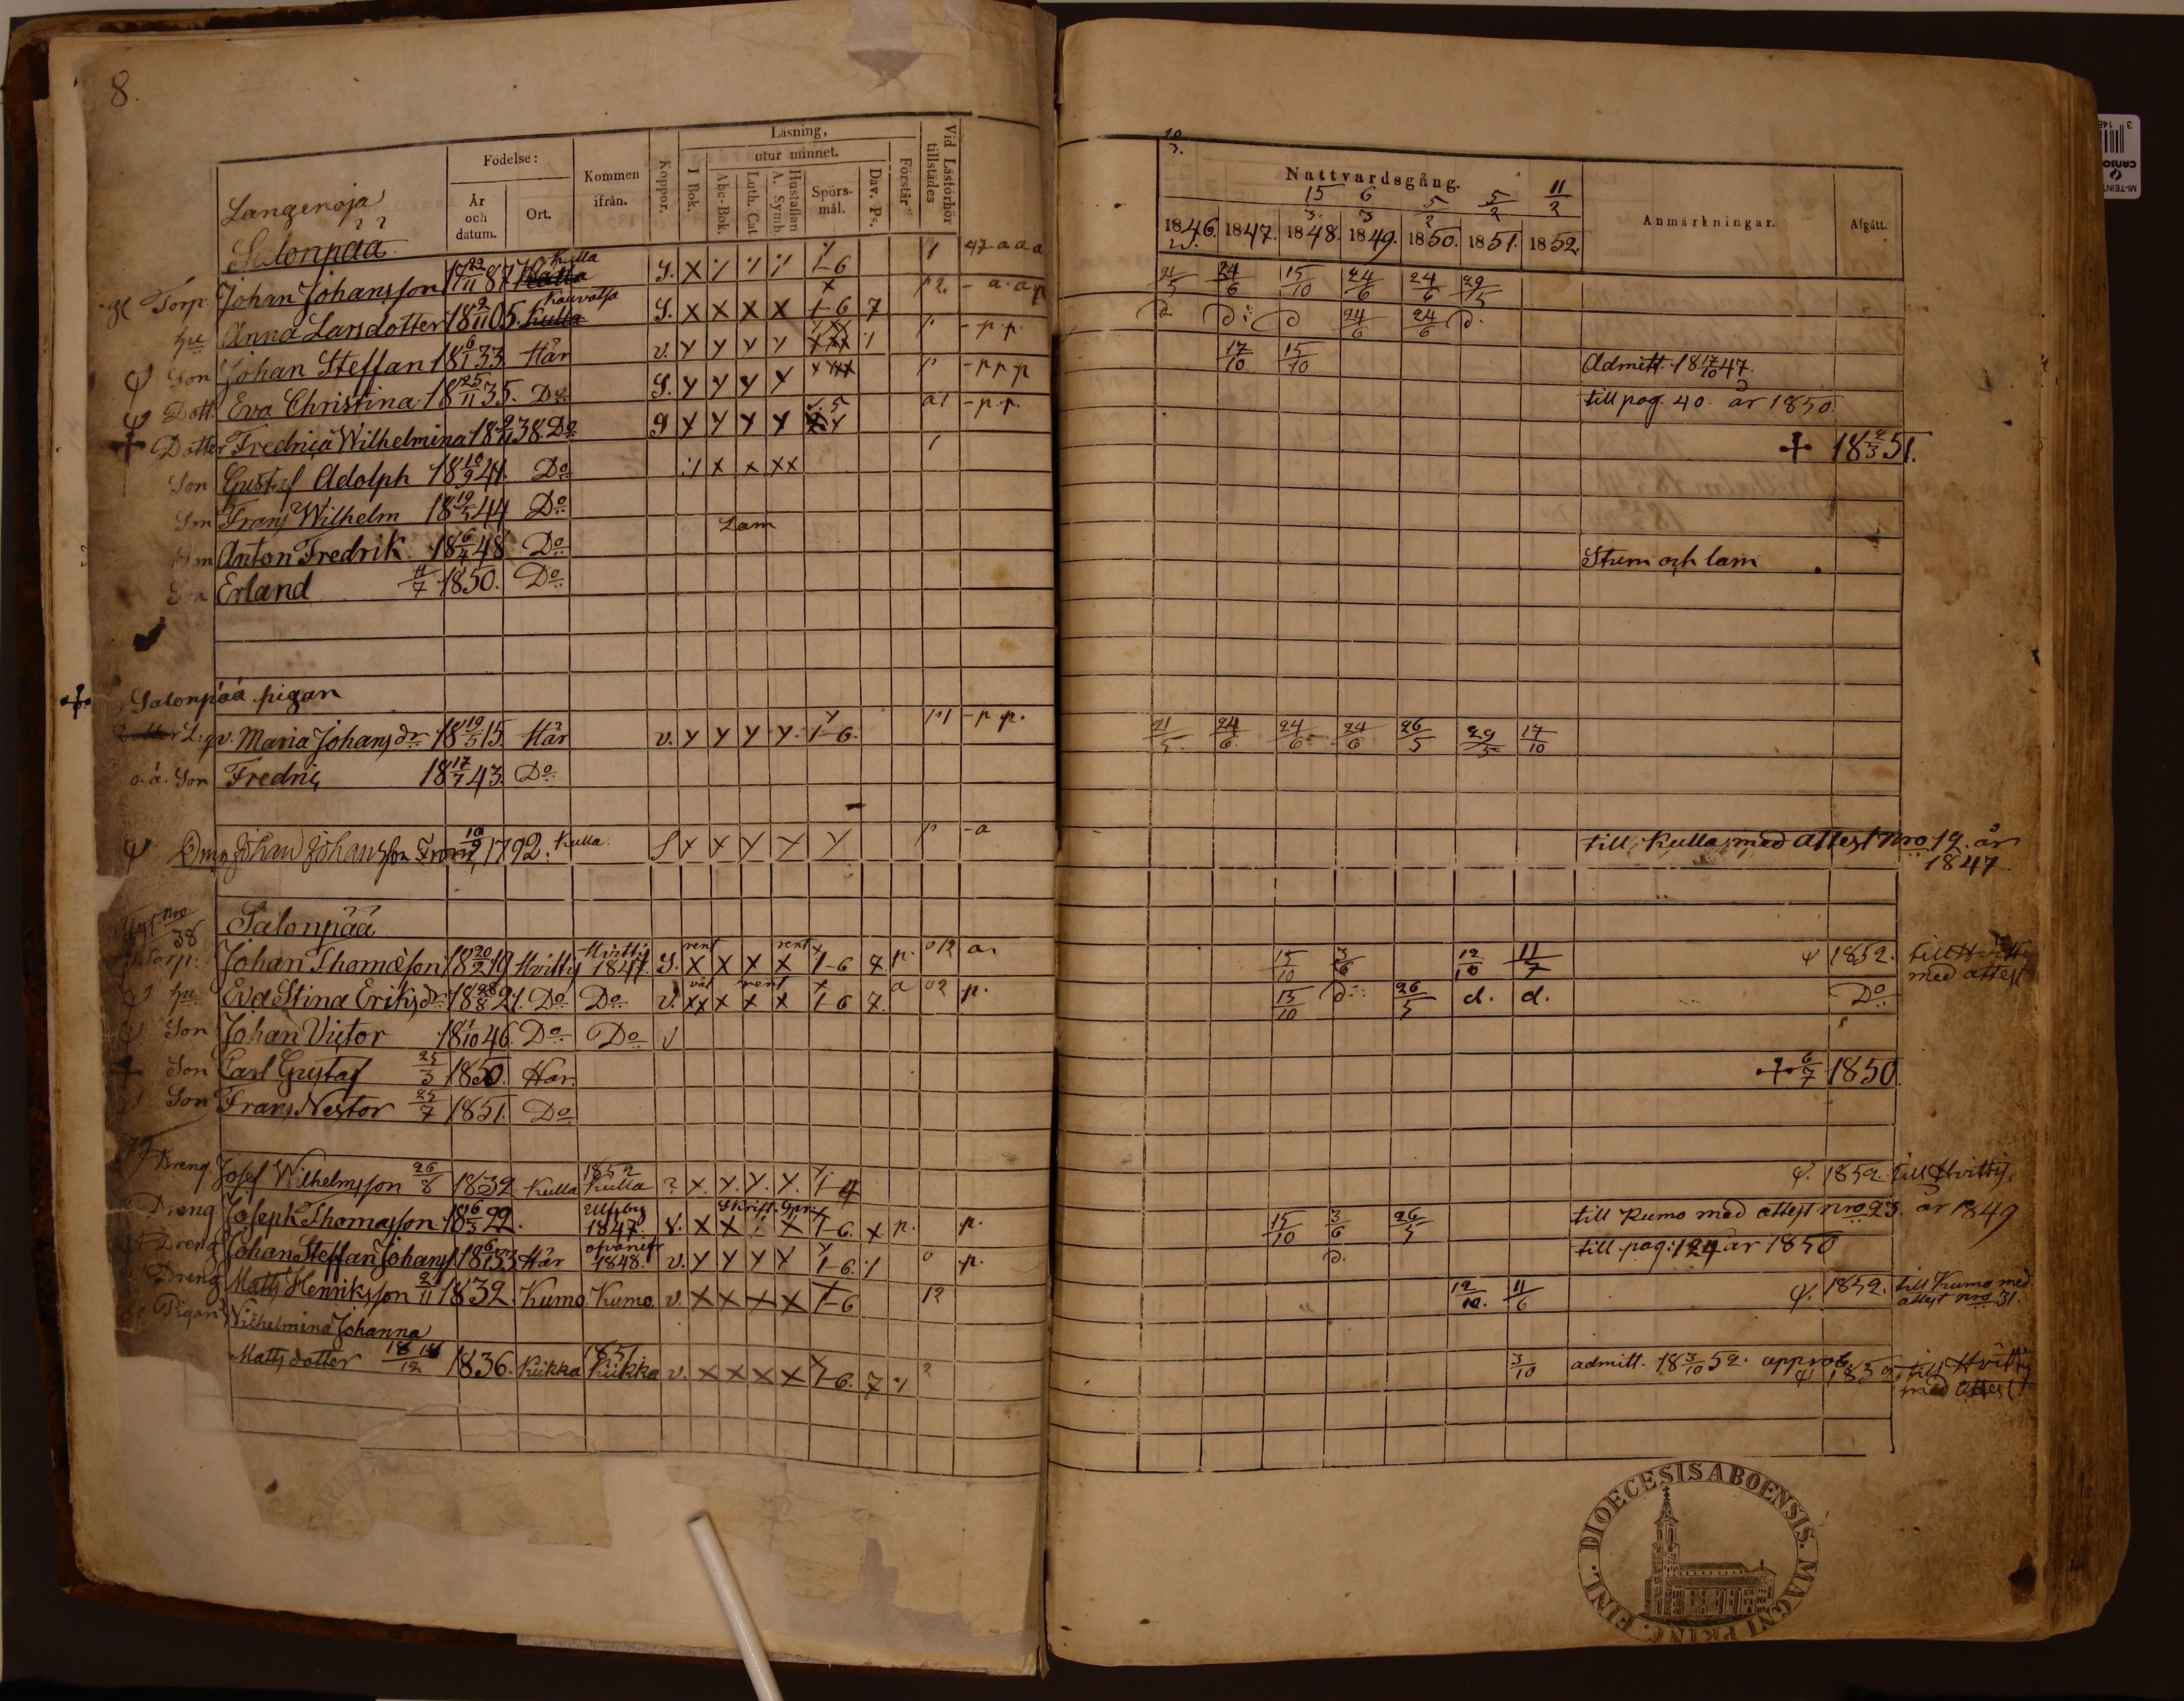 8.
Födelse: Kommen ifrån. Koppor. Läsning, Vid Läsförhör tillstädes
År och datum. Ort. I Bok. utur minnet. Förstår
Abc-Bok. Luth. Cat. Hustaflan A. Symb. Spörsmål. Dav. Ps.
Nattvardsgång. Anmärkningar. Afgått.
20/3. 15/3. 6/3 5/2 5/2 11/2
1846. 1847. 1848. 1849. 1850. 1851. 1852.
Langenoja
Salonpää
Torp. Johan Johansson 17 22/11 87 Kulla S. X 1-6 47 a a a 21/5 24/6 15/10 24/6 24/6 29/5
hu Anna Larsdotter 18 2/11 05. Kulla Kauvatsa S. X X X X 1-6 7 12. - a. a p d d: d 24/6 24/6 d.
Son Johan Steffan 18 6/1 33 Här v. Y Y Y Y - p. p. 17/10 15/10 Admitt. 18 17/10 47.
Dott. Eva Christina 18 25/11 35. Do S. Y Y Y Y - p p p till pag. 40. år 1850.
Dotter Fredrica Wilhelmina 18 2/11 38. Do S Y Y Y Y a1 - p. p. 18 2/3 51.
Son Gustaf Adolph 18 10/9 41. Do X X XX
Son Frans Wilhelm 18 19/3 44 Do
Son Anton Fredrik 18 6/4 48 Do Lam Stum och lam
Son Erland 11/7 1850. Do
Salonpää pigan
Dotter L: qv. Maria Johansdr 18 19/3 15. Här v. Y Y Y Y 1-6. - p. p. 21/5 24/6 24/6 24/6 26/5 29/5 17/10
o. ä. Son Fredric 18 17/7 43. Do
Johan Johansson 10/9 1792. Kulla S Y Y Y Y Y - a till Kulla med attest nro 19. år
1847.
nro 38
Salonpää
Torp. Johan Thomæson 18 20/2 19 Hvittis Hvittis 1847. S. rent X X X rent X 1-6 7 p. 012 a. 15/10 3/6 12/10 11/7 1852. till Hvittis
med attest
hu Eva Stina Eriksdr 18 28/8 21. Do Do v. väl XX X rent X X 1-6 7. a 02 p. 15/10 d: 26/5 d. d. Do
Son Johan Victor 18 1/10 46. Do Do v
Son Carl Gustaf 25/3 1850. Här. 6/7 1850.
Son Frans Nestor 25/7 1851. Do
Dreng. Josef Wilhelmsson 26/8 1832 Kulla 1852 Kulla ? X. Y. Y. Y. 1-4 1852. till Hvittis.
Dreng. Joseph Thomasson 18 6/3 22. Ulfsby 1847. v. X X X 1-6. X p. p. 15/10 3/6 26/5 till Kumo med attest nro 23. år 1849
Dreng Johan Steffan Johans. 18 6/1 33 Här ofvanefr 1848. v. Y Y Y Y 1-6. 0 p. d. till pag: 124 år 1850
Dreng Matts Henriksson 21/11 1832. Kumo. Kumo v. X X X X 1-6 12 12/10. 11/6 1852. till Kumo med
attest nro 31.
Pigan Wilhelmina Johanna
Mattsdotter 18/12 1836. Kiikka 1851. Kiikka v. X X X X 1-6. 7 2 3/10 admitt. 18 3/10 52. approb. 1852. till Hvittis
med attest
FINL. DIOECESIS ABOENSIS. MAGNI PRINC.